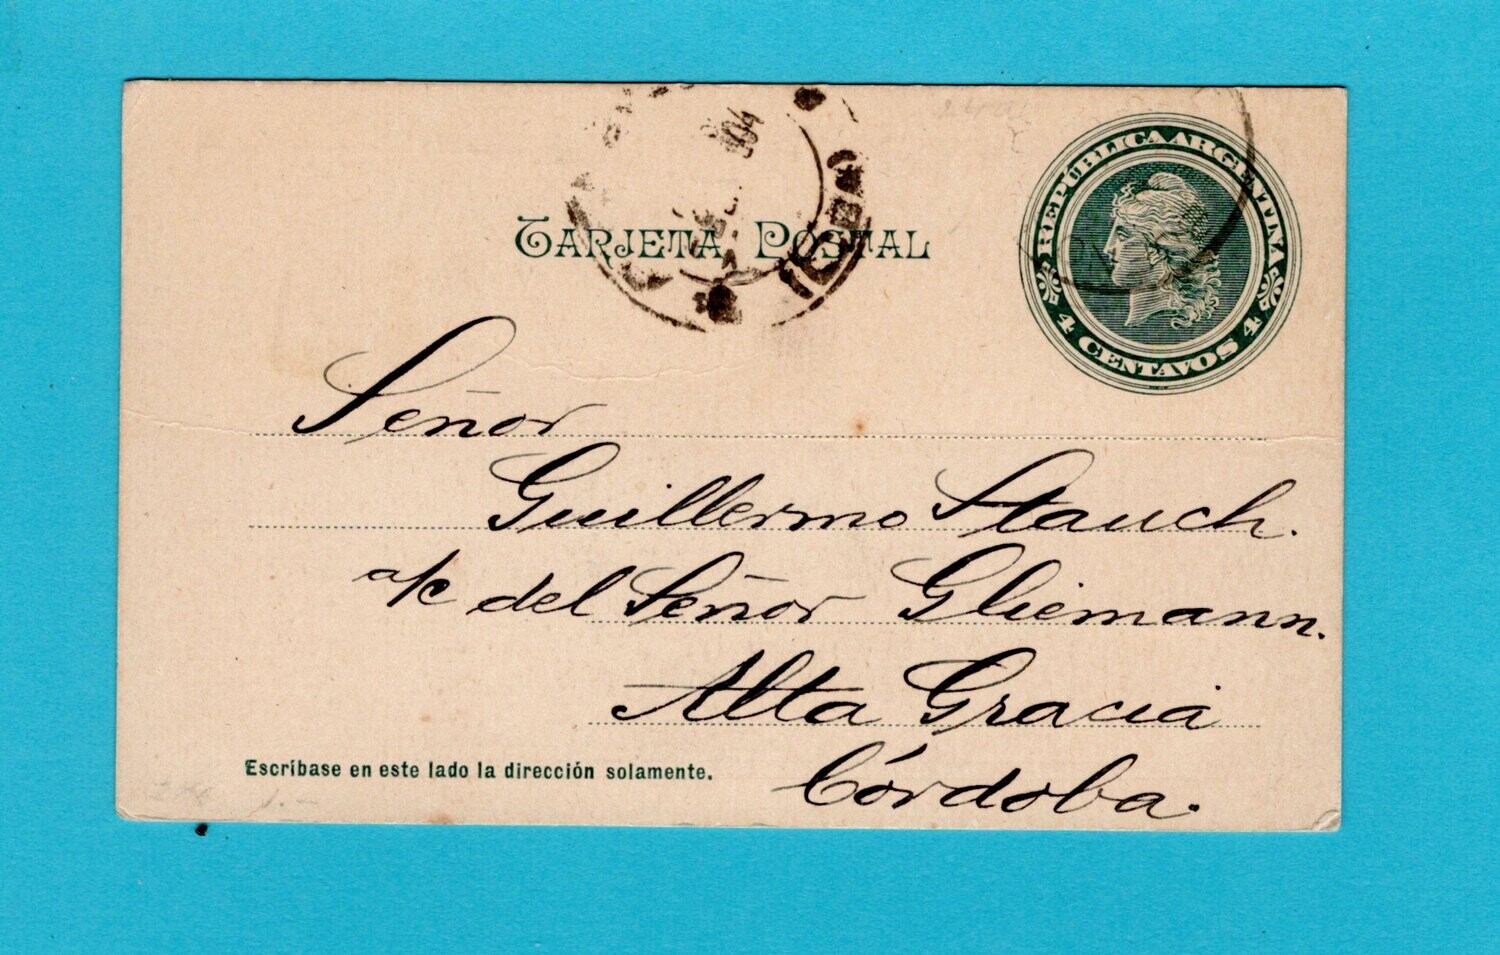 TARJETA POSTAL
REPÚBLICA ARGENTINA
4 CENTAVOS 4
904
Señor
Guillermo Stauch.
a/c del Señor Gliemann.
Alta Gracia
Córdoba.
Escríbase en este lado la dirección solamente.